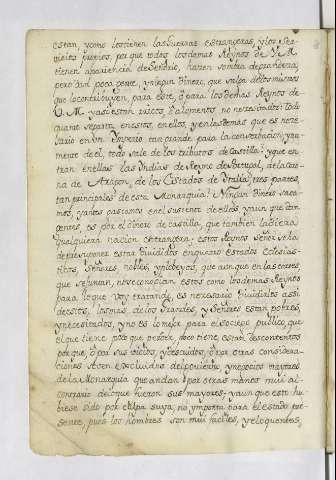 estan, y como los tienen las Guerras estrangeras, y los ser-
vicios, porque todos los demas Reynos de V. M.
tienen apariencia de señorio, hazen sombra de grandeza,
pero dan poca gente, y ningun dinero, que salga de los mismos
que lo contribuyen, para este, ò para los demas Reynos de
V. M. y assi estan ricos, ò alomenos no necesitados: todo
quanto se gasta en estos, en ellos, y en las demas que es nece-
sario en un Imperio tan grande para la conservacion, y au-
mento de el, todo sale de los tributos de Castilla: y que en-
tran en ellas las Indias del Reyno de Portugal, de la coro-
na de Aragon, de los Estados de Italia, tres partes,
tan principales de esta Monarquia: Ningun dinero saca-
mos, y antes gastamos en el sustento de ellos, y aun que tan
es por el dinero de Castilla, que tambien la diera
qualquiera nacion estrangera: estos Reynos Señor se ha
de presuponer estan divididos en quatro estados Eclesias-
ticos, Señores, nobles, y plebeyos, que aunque en las cortes,
que se juntan, no se conocian estos como los demas Reynos
para lo que voy tratando, es necesario dividirlos assi
de estos, los mas de los Grandes, y Señores estan pobres,
y necesitados, y no es lo mejor para el sosiego publico, que
el que tiene poco que perder, poco tiene, estan descontentos
porque, ò por sus vicios, y descuidos, ò por otras considera-
ciones estan excluidos del govierno, y negocios mayores
de la Monarquia que andan por otras manos mui al
contrario de lo que fueron sus mayores: y aun que esto hu-
biese sido por culpa suya, no importa para el estado pre-
sente, pues los hombres son mui faciles, y eloquentes,